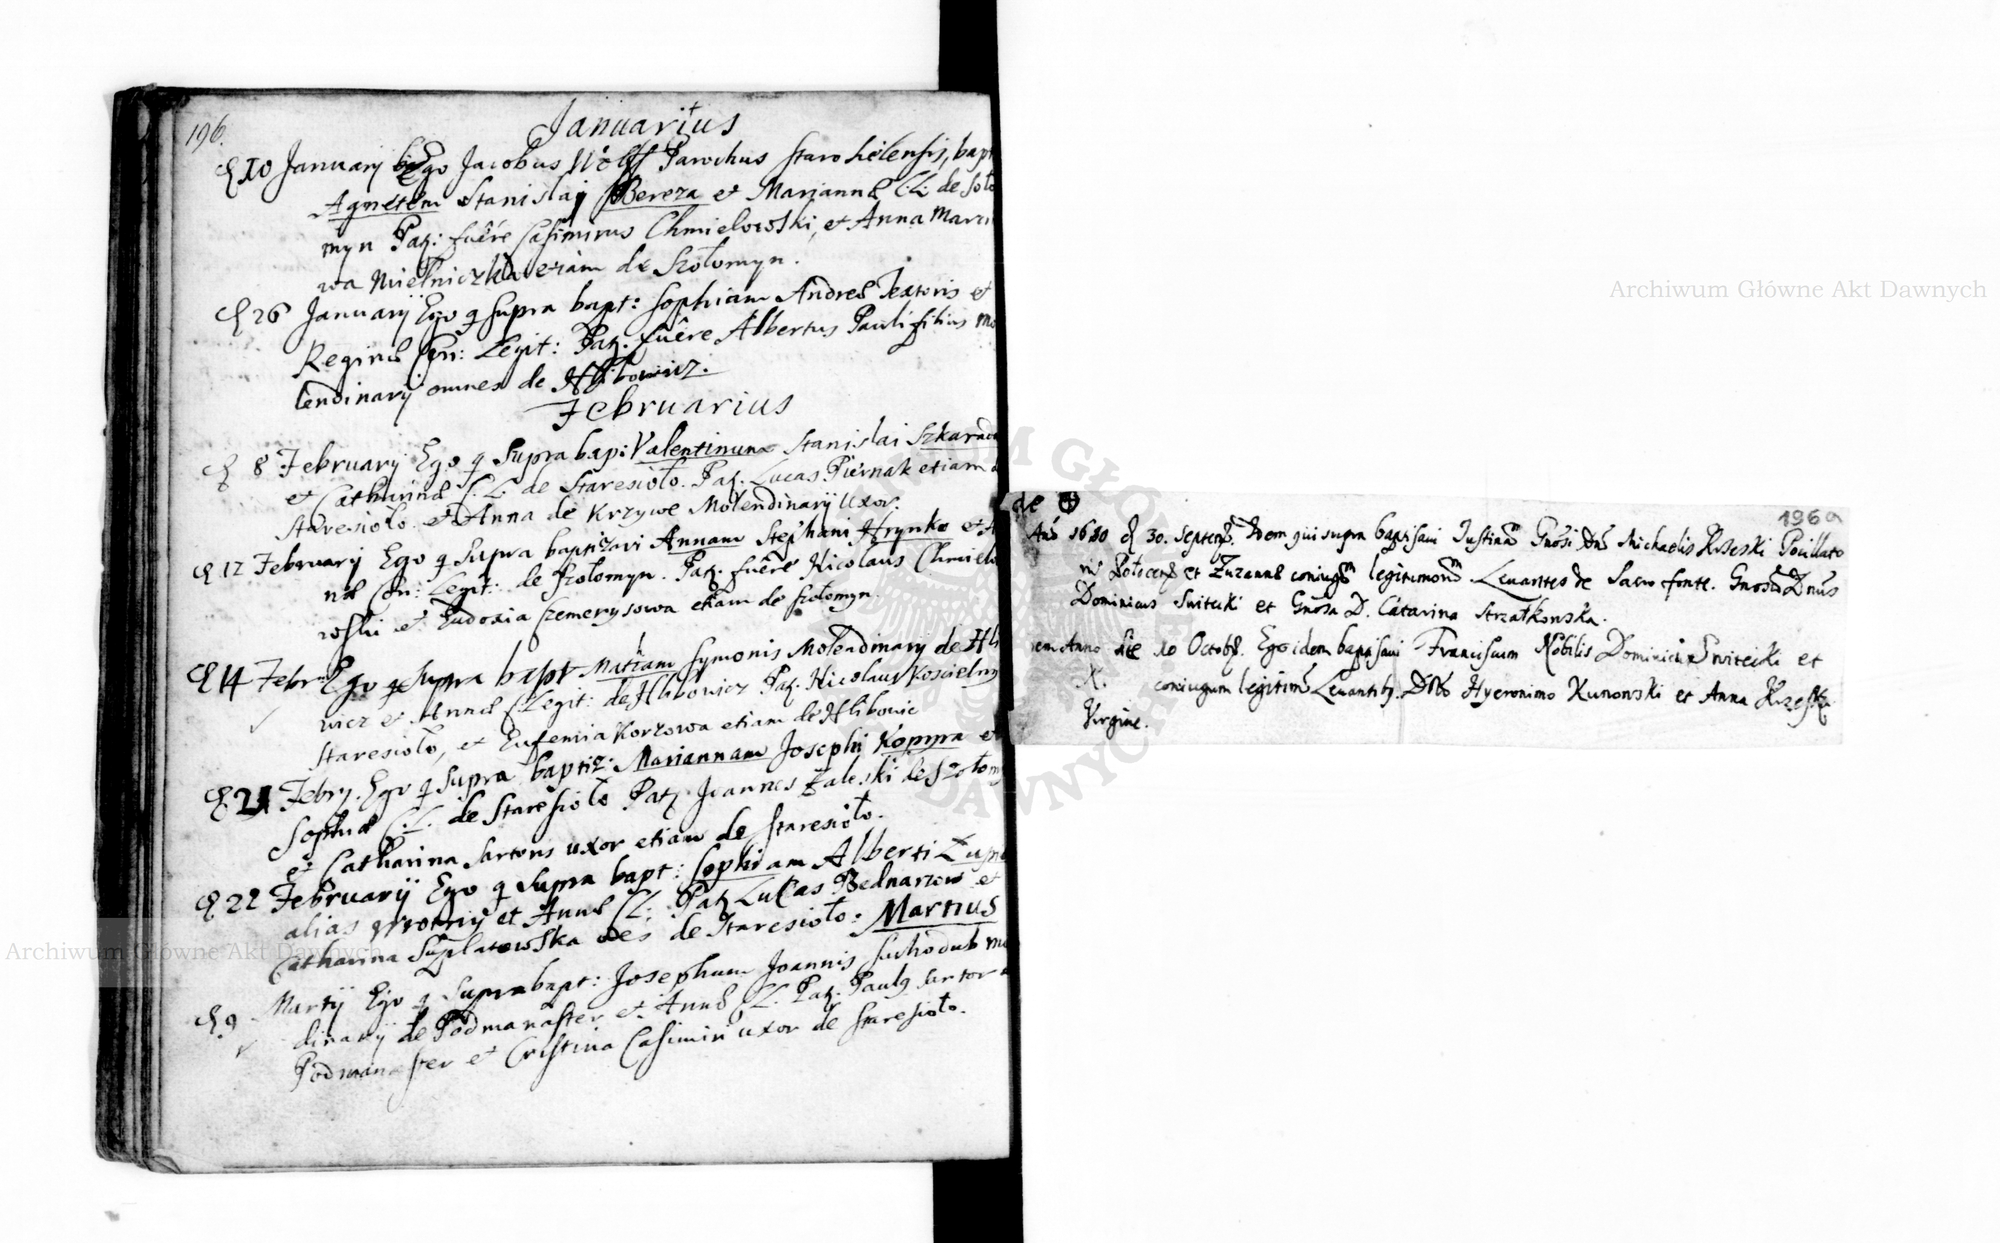 196.
Januarius
10 January Ego Jacobus Wolff Parochus staro
Agnetem Stanislaij Bereza et Mariannæ C.L. de Soło
myn Pat: fuêre Casimirus Chmielowski, et Anna Marci
wa Mielniczka etiam de Szołomyn.
26 January Ego q supra bapt: Sophiam Andreæ Textoris et
Reginæ Con: Legit: Pat. fuêre Albertus Pauli filius Mo
lendinarij omnes de Hlibowicz.
Februarius
8 February Ego q Supra bap: Valentinum Stanislai
et Catharinæ C.L. de Staresioło. Pat. Lucas Piernak etiam
Staresioło et Anna de Krzywe Molendinarij Uxor.
12 February Ego q Supra baptizavi Annam Stephani Hrynko et
næ Con: Legit: de Szołomyn. Pat. fuêre Nicolaus Chmielo
wski et Eudoxia Szemerysowa etiam de Szołomyn.
14 Febr: Ego q Supra bapt Symonis Molendinarij de Hli
wicz et Annæ C Legit: de Hlibowicz Pat. Nicolaus Koscielny
Staresioło, et Eufemia Korzowa etiam de Hlibowic
21 Febry. Ego q Supra baptiz: Mariannam Josephi Kopyra et
Sophiæ C.L. de Staresioło Pat. Joannes Zaleski de Szołomy
et Catharina Sartoris uxor etiam de Staresioło.
22 February Ego q Supra bapt: Sophiam Alberti
alias et Annæ C.L. Pat. Lucas Bednarzow et
Catharina de Staresioło: Martius
9 Martij Ego q Supra bapt: Josephum Joannis Suchodub Mo
dinarij de Podmanaster et Annæ C.L. Pat. Paulq Sartor
Podmanaster et Cristina Casimiri uxor de Staresioło.
196a
de
Anō 1680 30. Septembr. Idem qui supra baptisavi Justinam Gnosi Dni Michaelis Krzeski
et Zuzannæ coniugum legitimorum. Levantes de Sacro fonte. Gnosus Dnus
Dominicus Switecki et Gnosa D. Catarina Strzałkowska.
Anno die 10 Octobr. Ego idem baptisavi Franciscum Nobilis Dominici Switecki et
N. coniugum legitimor Levantib. Dno Hyeronimo Kunowski et Anna Krzeska
Virgine.
Archiwum Główne Akt Dawnych
Archiwum Główne Akt Dawnych